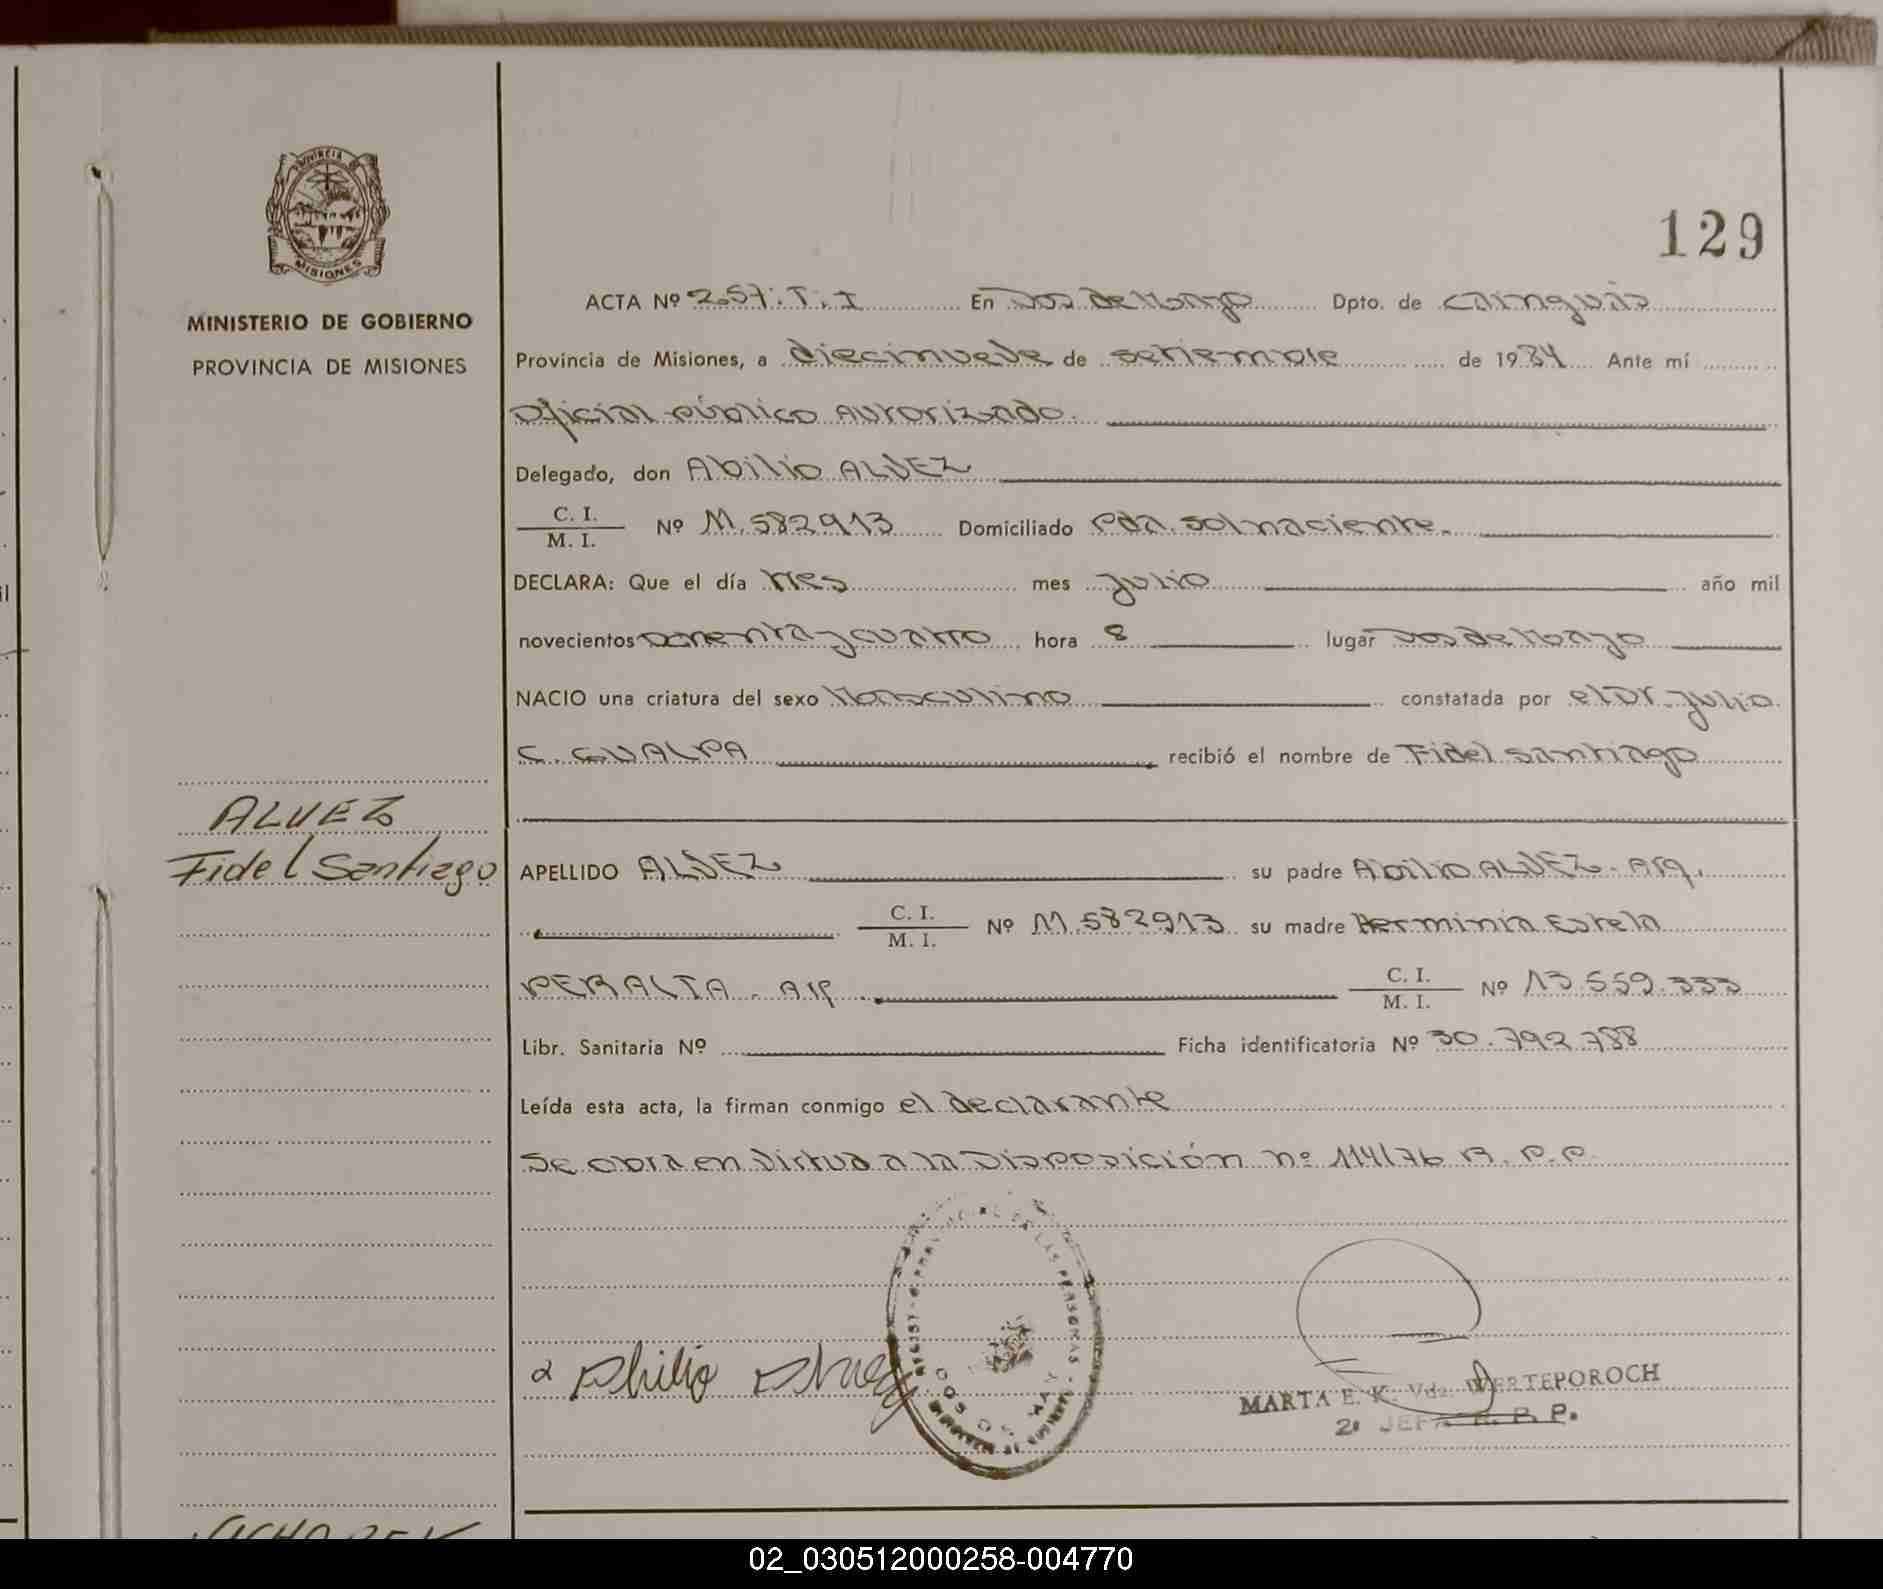 129
PROVINCIA
MISIONES
MINISTERIO DE GOBIERNO
PROVINCIA DE MISIONES
ACTA Nº 257. T. I En Dos de Mayo Dpto. de Cainguás
Provincia de Misiones, a diecinueve de setiembre de 1984 Ante mí
Oficial público Autorizado.
Delegado, don Abilio ALVEZ
C. I.
M. I. Nº M. 582913 Domiciliado Pda. Sol naciente.
DECLARA: Que el día tres mes julio año mil
novecientos ochenta y cuatro hora 8 lugar Dos de Mayo
NACIO una criatura del sexo Masculino constatada por el Dr. Julio
C. GUALPA recibió el nombre de Fidel Santiago
ALVEZ
Fidel Santiago
APELLIDO ALVEZ su padre Abilio ALVEZ - Arg.
C. I.
M. I. Nº M. 582913 su madre Herminia Estela
PERALTA - Arg. C. I.
M. I. Nº 13.559.333
Libr. Sanitaria Nº Ficha identificatoria Nº 30.792.788
Leída esta acta, la firman conmigo el declarante
Se obra en virtud a la Disposición nº 114/76 R. P. P.
Abilio Alvez
DOS DE MAYO
MARTA E. K. Vda. WERTEPOROCH
2º JEFA R. P. P.
02_030512000258-004770